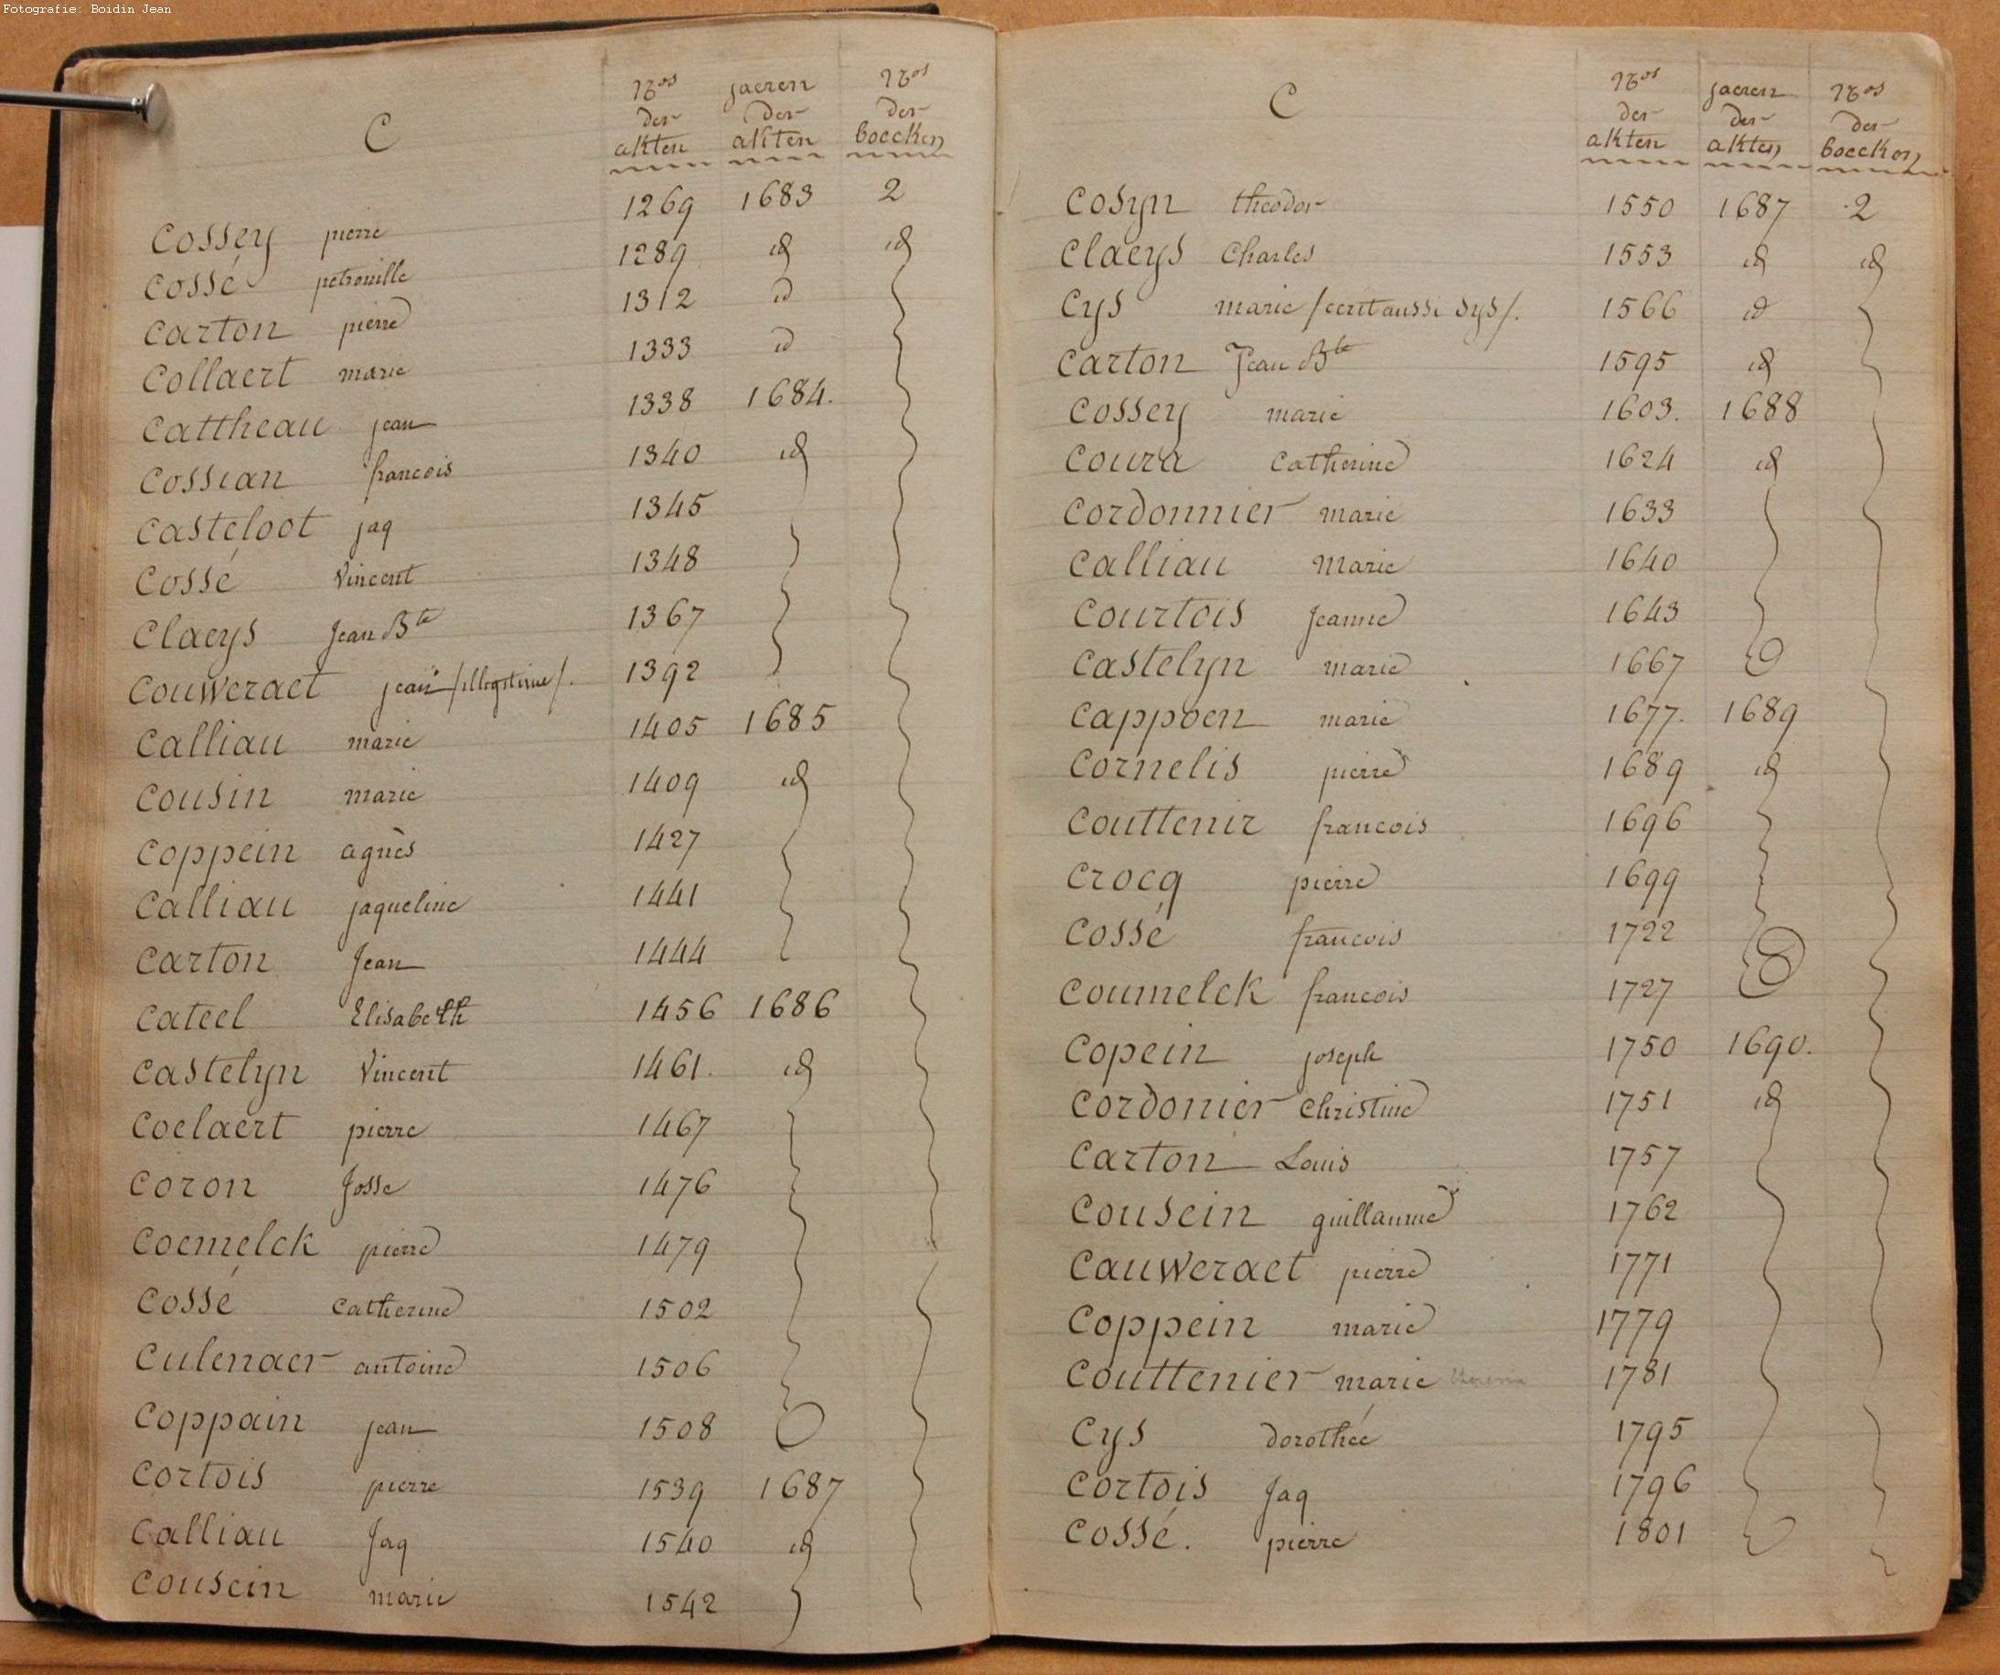 Fotografie: Boidin Jean
C
Nos der akten
jaeren der akten
Nos der boecken
Cossey pierre 1269 1683 2
Cossé petronille 1289 id id
Carton pierre 1312 id
Collaert marie 1333 id
Cattheau jean 1338 1684.
Cossian francois 1340 id
Casteloot jaq 1345
Cossé Vincent 1348
Claeys Jean Bte 1367
Couweraet jean /illegitime/. 1392
Calliau marie 1405 1685
Cousin marie 1409 id
Coppein agnès 1427
Calliau jaqueline 1441
Carton Jean 1444
Cateel Elisabeth 1456 1686
Castelyn Vincent 1461. id
Coelaert pierre 1467
Coron Josse 1476
Coemelck pierre 1479
Cossé Catherine 1502
Culenaer antoine 1506
Coppain jean 1508
Cortois pierre 1539 1687
Calliau Jaq 1540 id
Cousein marie 1542
C
Nos der akten
jaeren der akten
Nos der boecken
Cosyn theodor 1550 1687 2
Claeys Charles 1553 id id
Cys marie /ecrit aussi Sys/. 1566 id
Carton Jean Bte 1595 id
Cossey marie 1603. 1688
Coura Catherine 1624 id
Cordonnier marie 1633
Calliau Marie 1640
Courtois Jeanne 1643
Castelyn marie 1667
Cappoen marie 1677. 1689
Cornelis pierre 1689 id
Couttenir francois 1696
Crocq pierre 1699
Cossé francois 1722
Coumelck francois 1727
Copein joseph 1750 1690.
Cordonier Christine 1751 id
Carton Louis 1757
Cousein guillaume 1762
Cauweraet pierre 1771
Coppein marie 1779
Couttenier marie 1781
Cys dorothée 1795
Cortois Jaq 1796
Cossé. pierre 1801